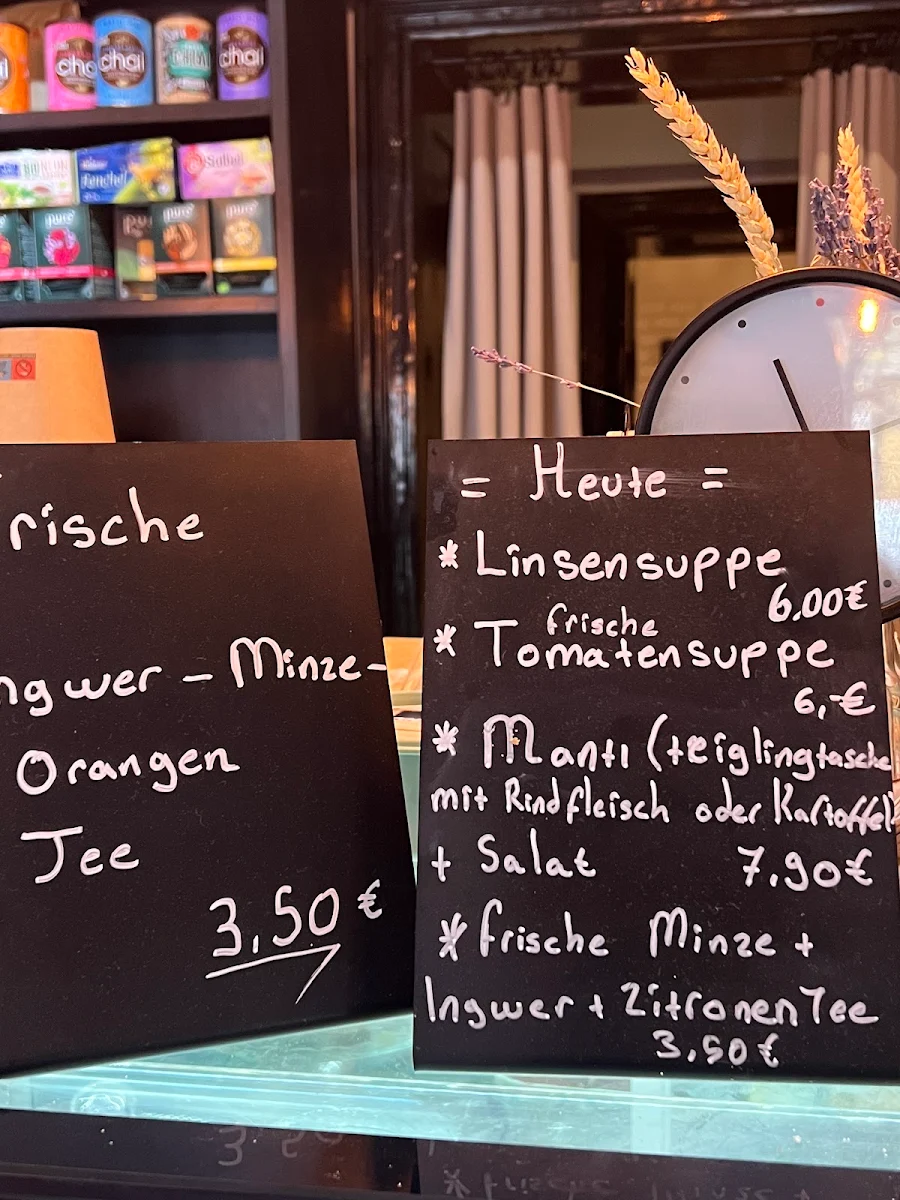 chai
chai
chai
chai
Fenchel
Salbei
pure
pure
pure
rische
ngwer - Minze-
Orangen
Tee
3,50 €
= Heute =
* Linsensuppe
6.00€
frische
* Tomatensuppe
6,-€
* Mantı (teiglingtasche
mit Rindfleisch oder Kartoffel)
+ Salat 7.90€
* frische Minze +
Ingwer + Zitronen Tee
3,50€